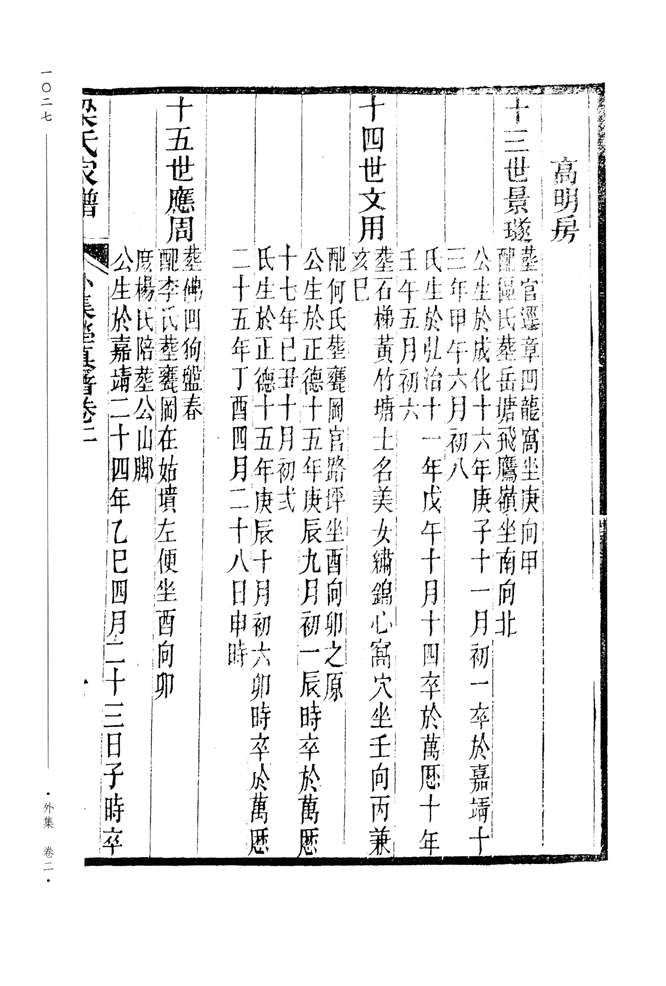 高明房
十三世景璲
葬官逕章凹龍窩坐庚向甲
配區氏葬岳塘飛鷹嶺坐南向北
公生於成化十六年庚子十一月初一卒於嘉靖十
三年甲午六月初八
氏生於弘治十一年戊午十月十四卒於萬厯十年
壬午五月初六
十四世文用
葬石梯黃竹塘土名美女繡錦心窩穴坐壬向丙兼
亥巳
配何氏葬甕岡官路坪坐酉向卯之原
公生於正德十五年庚辰九月初一辰時卒於萬厯
十七年己丑十月初弍
氏生於正德十五年庚辰十月初六卯時卒於萬厯
二十五年丁酉四月二十八日申時
十五世應周
葬佛凹狗盤春
配李氏葬甕岡在姑墳左便坐酉向卯
庶楊氏陪葬公山脚
公生於嘉靖二十四年乙巳四月二十三日子時卒
梁氏家譜
外集塋墓譜卷二
一〇二七
·外集 卷二·